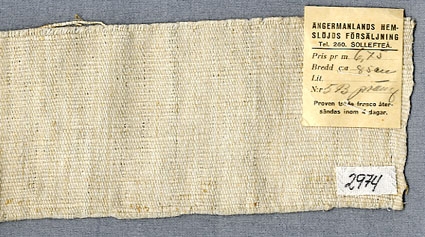 ÅNGERMANLANDS HEM-
SLÖJDS FÖRSÄLJNING
Tel. 250. SOLLEFTEÅ.
Pris pr m. 6,75
Bredd ca 85 cm
Lit.
N:r 5 B
Proven torde franco åter-
sändas inom 2 dagar.
2974